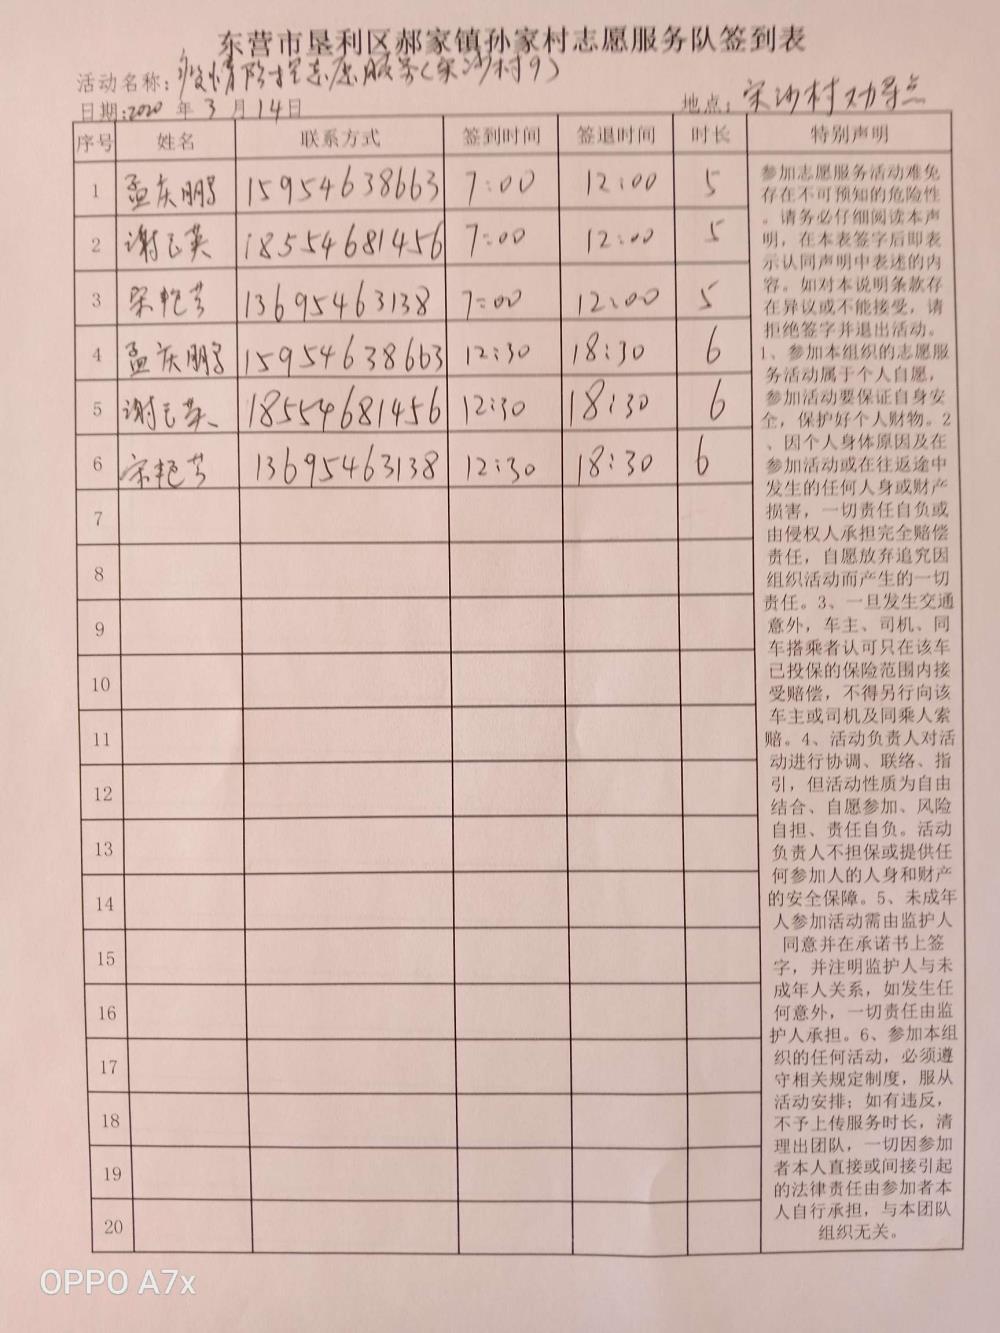 东营市垦利区郝家镇孙家村志愿服务队签到表
活动名称:疫情防控志愿服务(宋沙村9)
日期:2020 年 3 月 14 日 地点:宋沙村劝导点
序号 姓名 联系方式 签到时间 签退时间 时长 特别声明
1 孟庆鹏 15954638663 7:00 12:00 5
2 谢玉英 18554681456 7:00 12:00 5
3 宋艳芳 13695463138 7:00 12:00 5
4 孟庆鹏 15954638663 12:30 18:30 6
5 谢玉英 18554681456 12:30 18:30 6
6 宋艳芳 13695463138 12:30 18:30 6
7
8
9
10
11
12
13
14
15
16
17
18
19
20
参加志愿服务活动难免
存在不可预知的危险性
。请务必仔细阅读本声
明，在本表签字后即表
示认同声明中表述的内
容。如对本说明条款存
在异议或不能接受，请
拒绝签字并退出活动。
1、参加本组织的志愿服
务活动属于个人自愿，
参加活动要保证自身安
全，保护好个人财物。2
、因个人身体原因及在
参加活动或在往返途中
发生的任何人身或财产
损害，一切责任自负或
由侵权人承担完全赔偿
责任，自愿放弃追究因
组织活动而产生的一切
责任。3、一旦发生交通
意外，车主、司机、同
车搭乘者认可只在该车
已投保的保险范围内接
受赔偿，不得另行向该
车主或司机及同乘人索
赔。4、活动负责人对活
动进行协调、联络、指
引，但活动性质为自由
结合、自愿参加、风险
自担、责任自负。活动
负责人不担保或提供任
何参加人的人身和财产
的安全保障。5、未成年
人参加活动需由监护人
同意并在承诺书上签
字，并注明监护人与未
成年人关系，如发生任
何意外，一切责任由监
护人承担。6、参加本组
织的任何活动，必须遵
守相关规定制度，服从
活动安排；如有违反，
不予上传服务时长，清
理出团队，一切因参加
者本人直接或间接引起
的法律责任由参加者本
人自行承担，与本团队
组织无关。
OPPO A7x